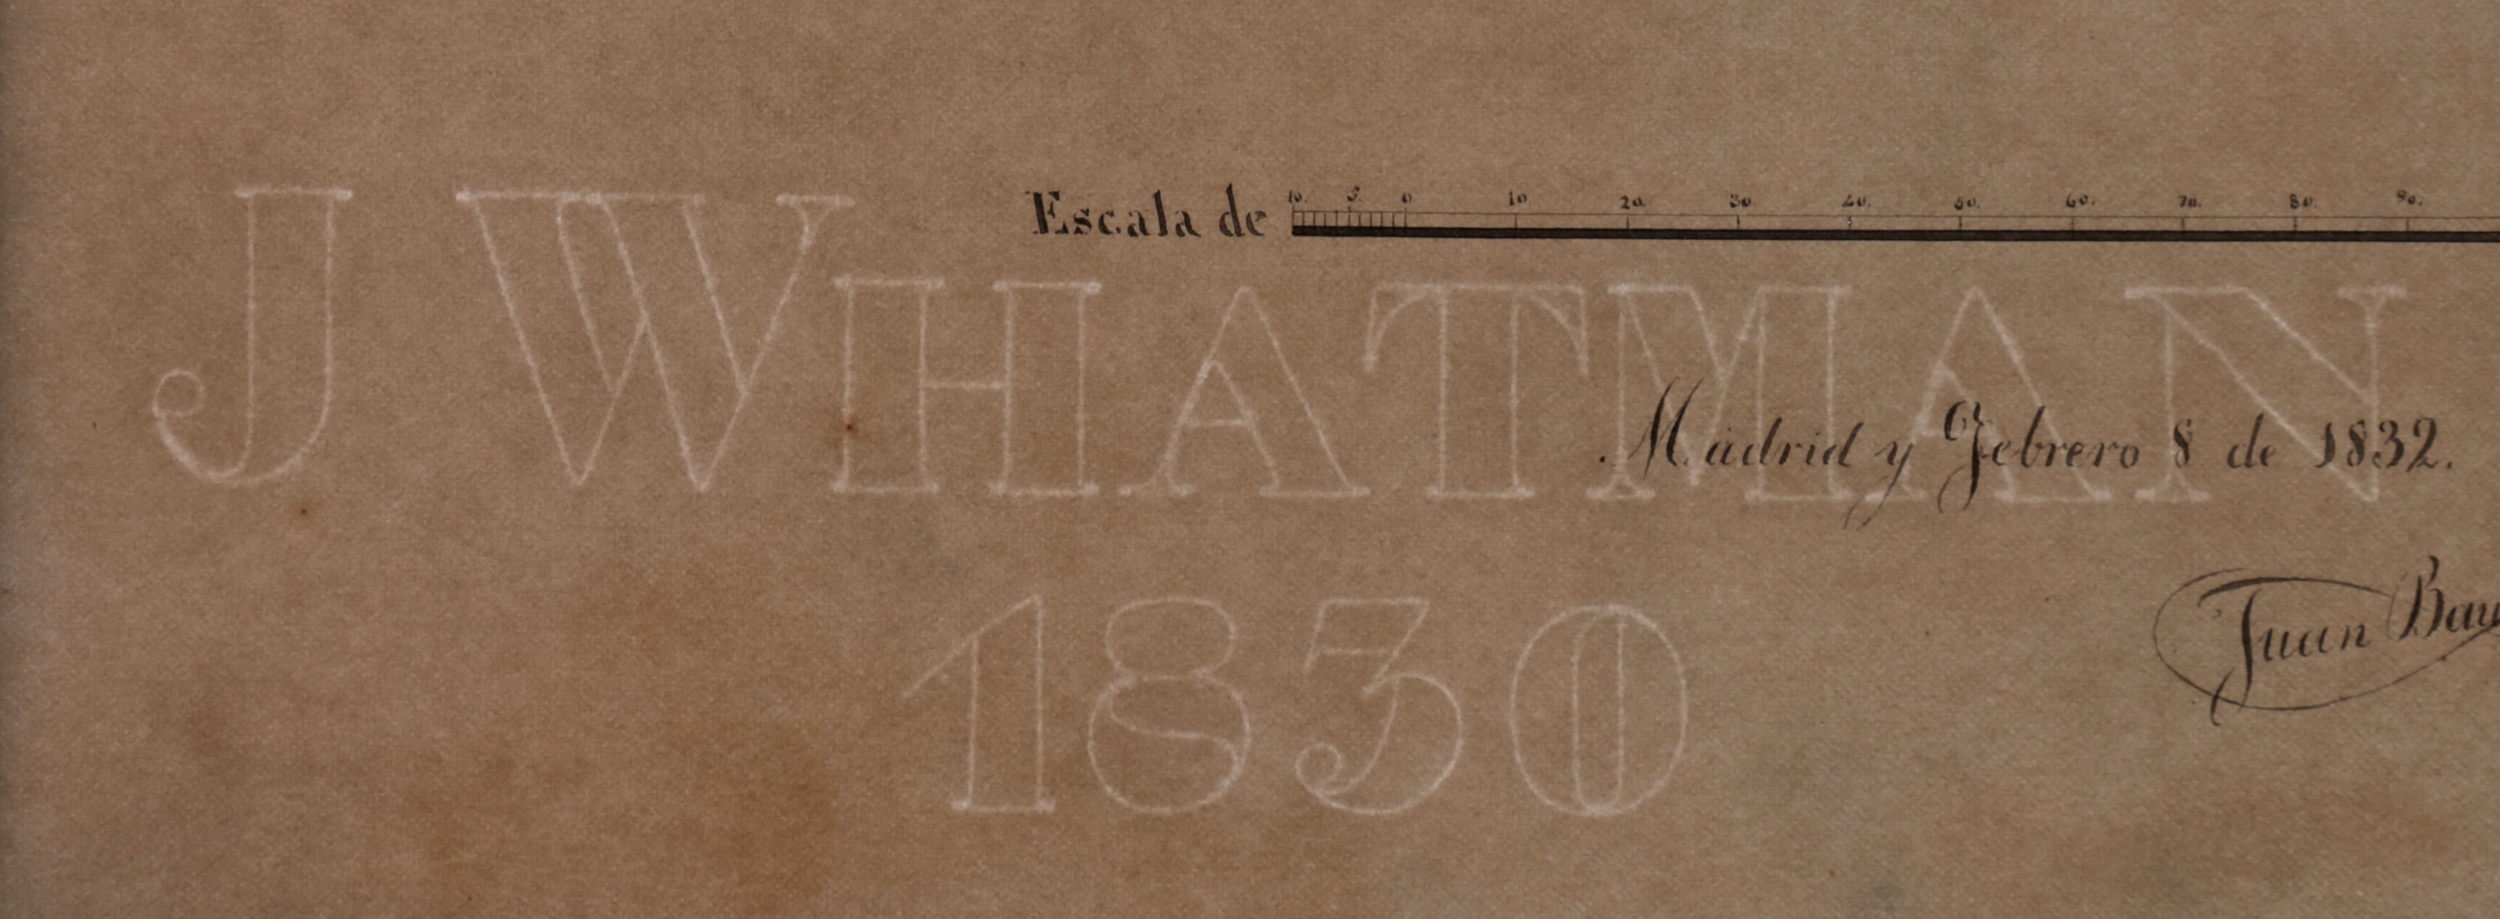 Escala de 10. 5. 0 10. 20. 30. 40. 50. 60. 70. 80. 90.
J WHATMAN
Madrid y Febrero 8 de 1832.
1830
Juan Bau